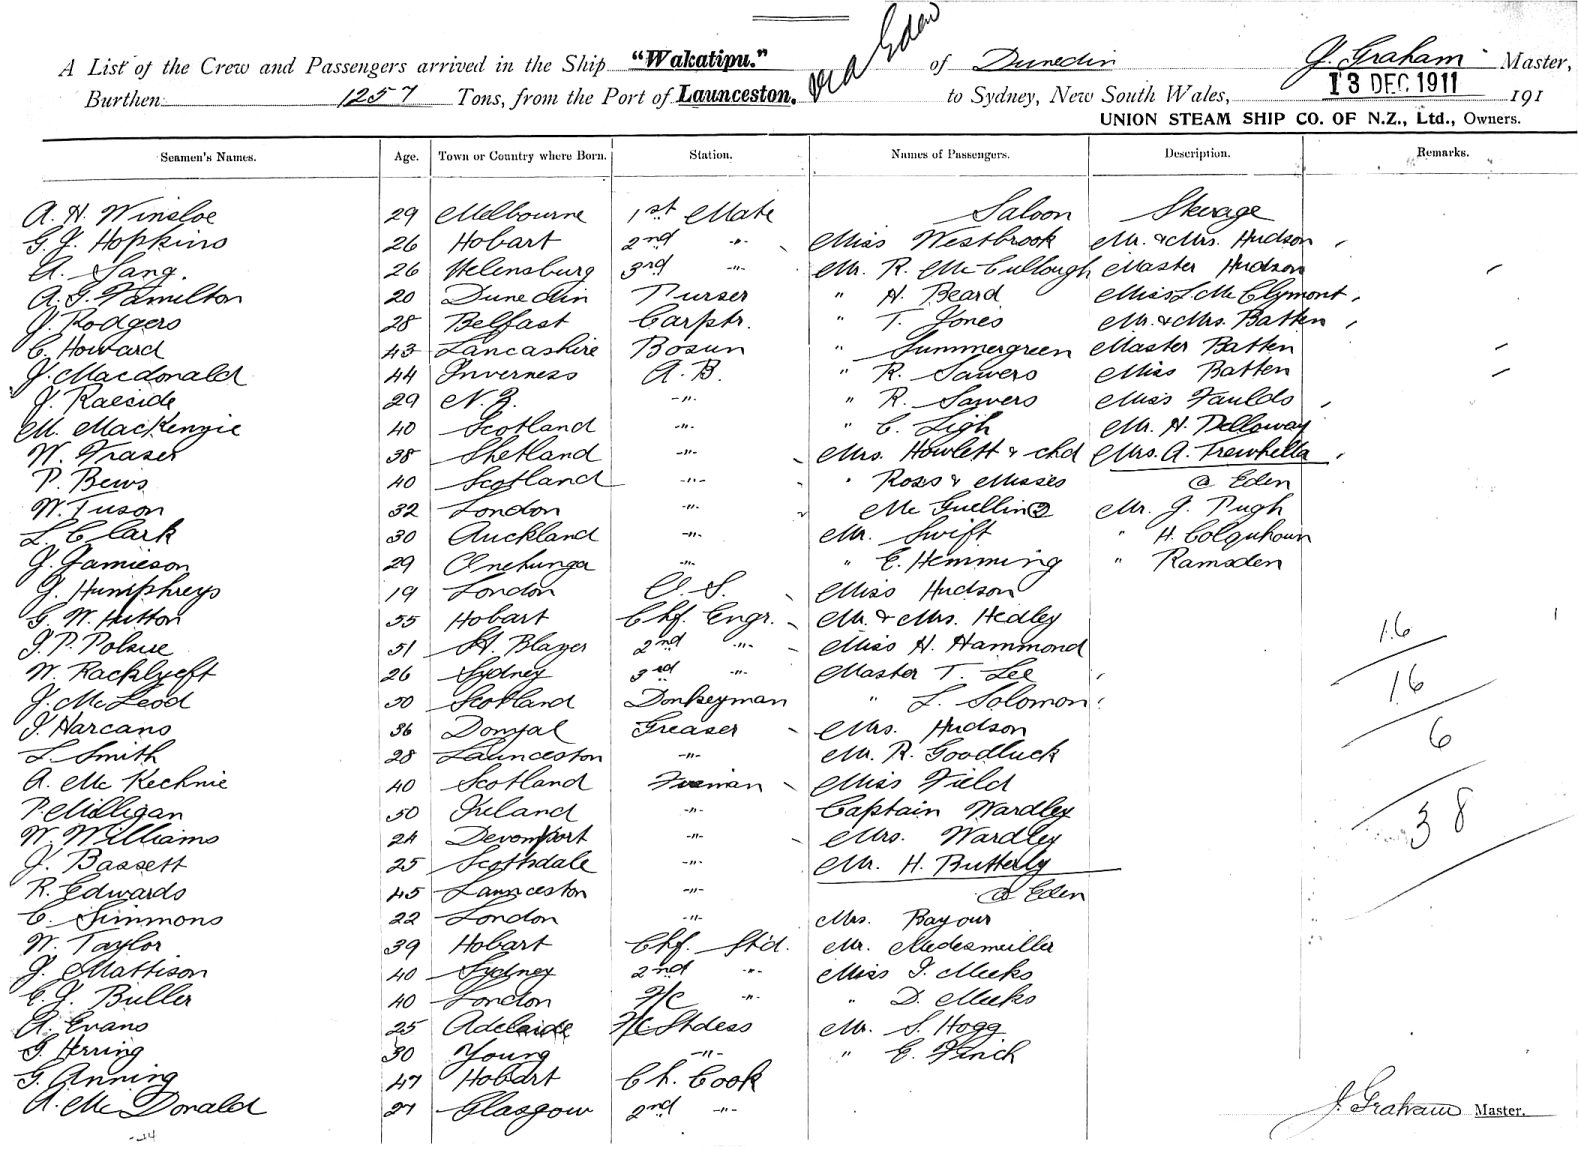 via Eden
A List of the Crew and Passengers arrived in the Ship "Wakatipu." of Dunedin J. Graham Master,
Burthen 1257 Tons, from the Port of Launceston, to Sydney, New South Wales, 13 DEC 1911 191
UNION STEAM SHIP CO. OF N.Z., Ltd., Owners.
Seamen's Names. Age. Town or Country where Born. Station. Names of Passengers. Description. Remarks.
A. H. Winsloe 29 Melbourne 1st Mate Saloon Steerage
G. J. Hopkins 26 Hobart 2nd -"- Miss Westbrook Mr. & Mrs. Hudson
A. Lang. 26 Helensburg 3rd -"- Mr. R. McCullough Master Hudson
A. G. Hamilton 20 Dunedin Purser " H. Beard Miss L. McClymont
J. Rodgers 28 Belfast Carptr. " T. Jones Mr. & Mrs. Batten
C. Howard 43 Lancashire Bosun " Summergreen Master Batten
J. Macdonald 44 Inverness A. B. " R. Sawers Miss Batten
J. Raeside 29 N. Z. -"- " R. Sawers Miss Faulds
M. MacKenzie 40 Scotland -"- " C. Ligh Mr. H. Delloway
W. Fraser 38 Shetland -"- Mrs. Howlett & chd Mrs. A. Trewhella
P. Bews 40 Scotland -"- " Ross & Misses @ Eden
W. Tuson 32 London -"- McGuellin 2 Mr. J. Pugh
L. Clark 30 Auckland -"- Mr. Swift " H. Colquhoun
J. Jamieson 29 Onehunga -"- " E. Hemming " Ramsden
G. Humphreys 19 London O. S. Miss Hudson
G. W. Hutton 55 Hobart Chf. Engr. Mr. & Mrs. Hedley
J. P. Polkise 51 St. Blazer 2nd -"- Miss H. Hammond 16
W. Racklyeft 26 Sydney 3rd -"- Master T. Lee
J. McLeod 50 Scotland Donkeyman " L. Solomon 16
J. Harcans 36 Donyal Greaser Mrs. Hudson
L. Smith 28 Launceston -"- Mr. R. Goodluck 6
A. McKechnie 40 Scotland Fireman Miss Field
P. Milligan 50 Ireland -"- Captain Wardley
W. Williams 24 Devonport -"- Mrs. Wardley 38
J. Bassett 25 Scottsdale -"- Mr. H. Butterly
R. Edwards 45 Launceston -"- @ Eden
C. Simmons 22 London -"- Mrs. Bayour
W. Taylor 39 Hobart Chf. Std. Mr. Medesmuller
J. Mattison 40 Sydney 2nd -"- Miss I. Meeks
C. J. Buller 40 London F/C -"- " D. Meeks
A. Evans 25 Adelaide F/C Stdess Mr. S. Hogg
G. Herring 30 Young -"- " E. Finch
G. Anning 47 Hobart Ch. Cook
A. McDonald 27 Glasgow 2nd -"- J. Graham Master.
34